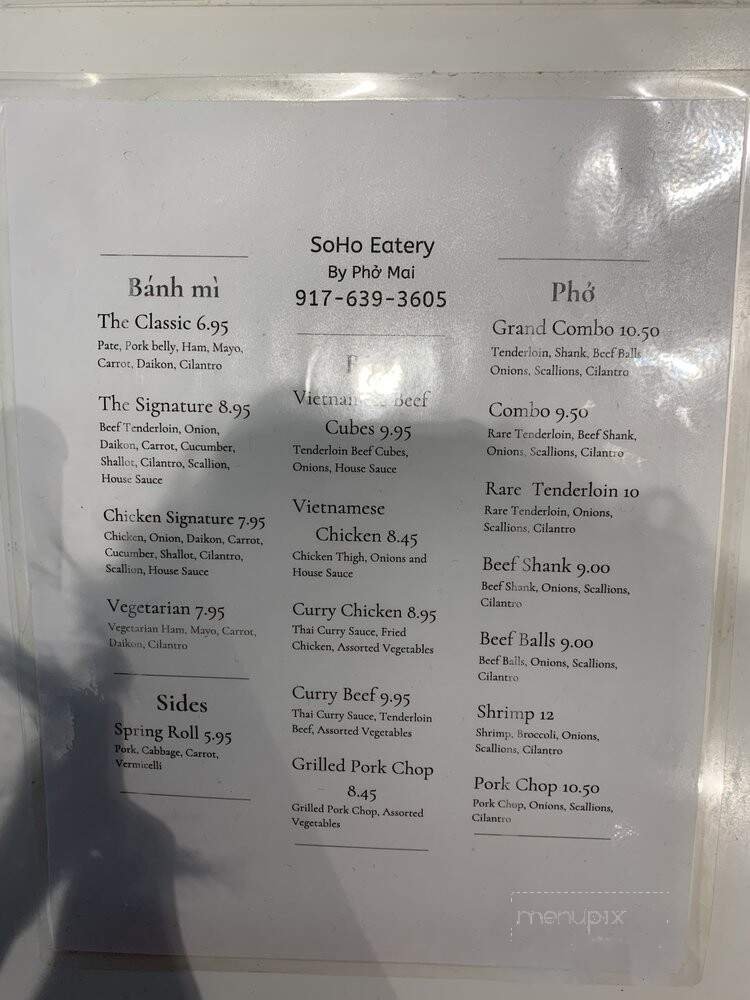 SoHo Eatery
By Phở Mai
917-639-3605
Bánh mì
The Classic 6.95
Pate, Pork belly, Ham, Mayo,
Carrot, Daikon, Cilantro
The Signature 8.95
Beef Tenderloin, Onion,
Daikon, Carrot, Cucumber,
Shallot, Cilantro, Scallion,
House Sauce
Chicken Signature 7.95
Chicken, Onion, Daikon, Carrot,
Cucumber, Shallot, Cilantro,
Scallion, House Sauce
Vegetarian 7.95
Vegetarian Ham, Mayo, Carrot,
Daikon, Cilantro
Sides
Spring Roll 5.95
Pork, Cabbage, Carrot,
Vermicelli
Vietnamese Beef
Cubes 9.95
Tenderloin Beef Cubes,
Onions, House Sauce
Vietnamese
Chicken 8.45
Chicken Thigh, Onions and
House Sauce
Curry Chicken 8.95
Thai Curry Sauce, Fried
Chicken, Assorted Vegetables
Curry Beef 9.95
Thai Curry Sauce, Tenderloin
Beef, Assorted Vegetables
Grilled Pork Chop
8.45
Grilled Pork Chop, Assorted
Vegetables
Phở
Grand Combo 10.50
Tenderloin, Shank, Beef Balls
Onions, Scallions, Cilantro
Combo 9.50
Rare Tenderloin, Beef Shank,
Onions, Scallions, Cilantro
Rare Tenderloin 10
Rare Tenderloin, Onions,
Scallions, Cilantro
Beef Shank 9.00
Beef Shank, Onions, Scallions,
Cilantro
Beef Balls 9.00
Beef Balls, Onions, Scallions,
Cilantro
Shrimp 12
Shrimp, Broccoli, Onions,
Scallions, Cilantro
Pork Chop 10.50
Pork Chop, Onions, Scallions,
Cilantro
menupix